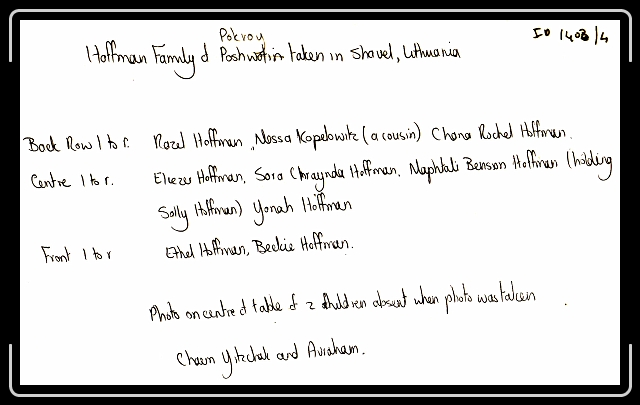 ID 1403/4
Pokroy
Hoffman Family of Poshwotin taken in Shavel, Lithuania
Back Row l to r. Razel Hoffman, Nessa Kopelowitz (a cousin) Chana Rochel Hoffman.
Centre l to r. Eliezer Hoffman, Sora Chraynda Hoffman, Naphtali Benson Hoffman (holding
Sally Hoffman) Yonah Hoffman
Front l to r Ethel Hoffman, Beckie Hoffman.
Photo on centre of table of 2 children absent when photo was taken
Chaim Yitzchak and Avraham.